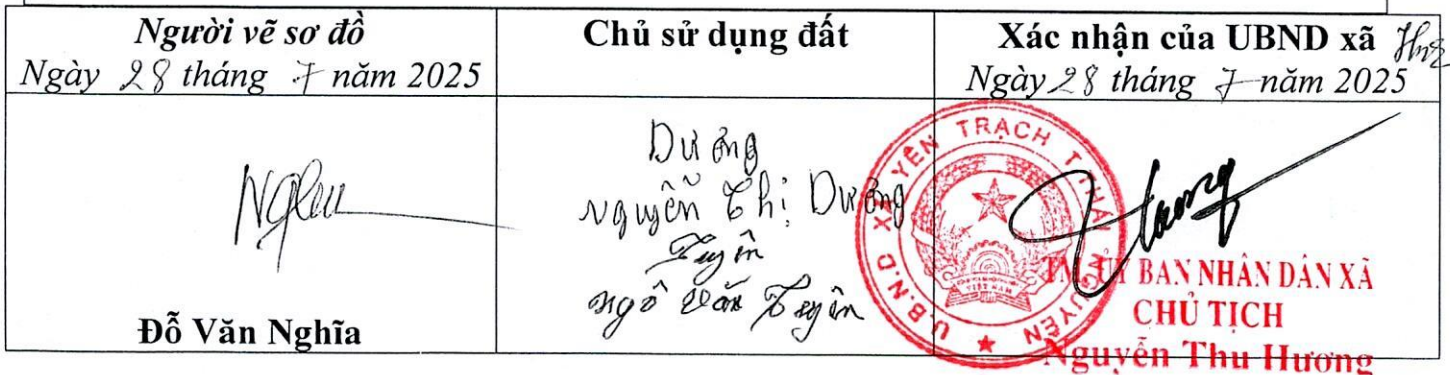 Người vẽ sơ đồ
Ngày 28 tháng 7 năm 2025
Chủ sử dụng đất
Xác nhận của UBND xã
Ngày 28 tháng 7 năm 2025
Đỗ Văn Nghĩa
Dương
Nguyễn Thị Dương
Tuyên
Ngô Văn Tuyên
U.B.N.D XÃ YÊN TRẠCH T.THÁI NGUYÊN
VIỆT NAM
TM. ỦY BAN NHÂN DÂN XÃ
CHỦ TỊCH
Nguyễn Thu Hương